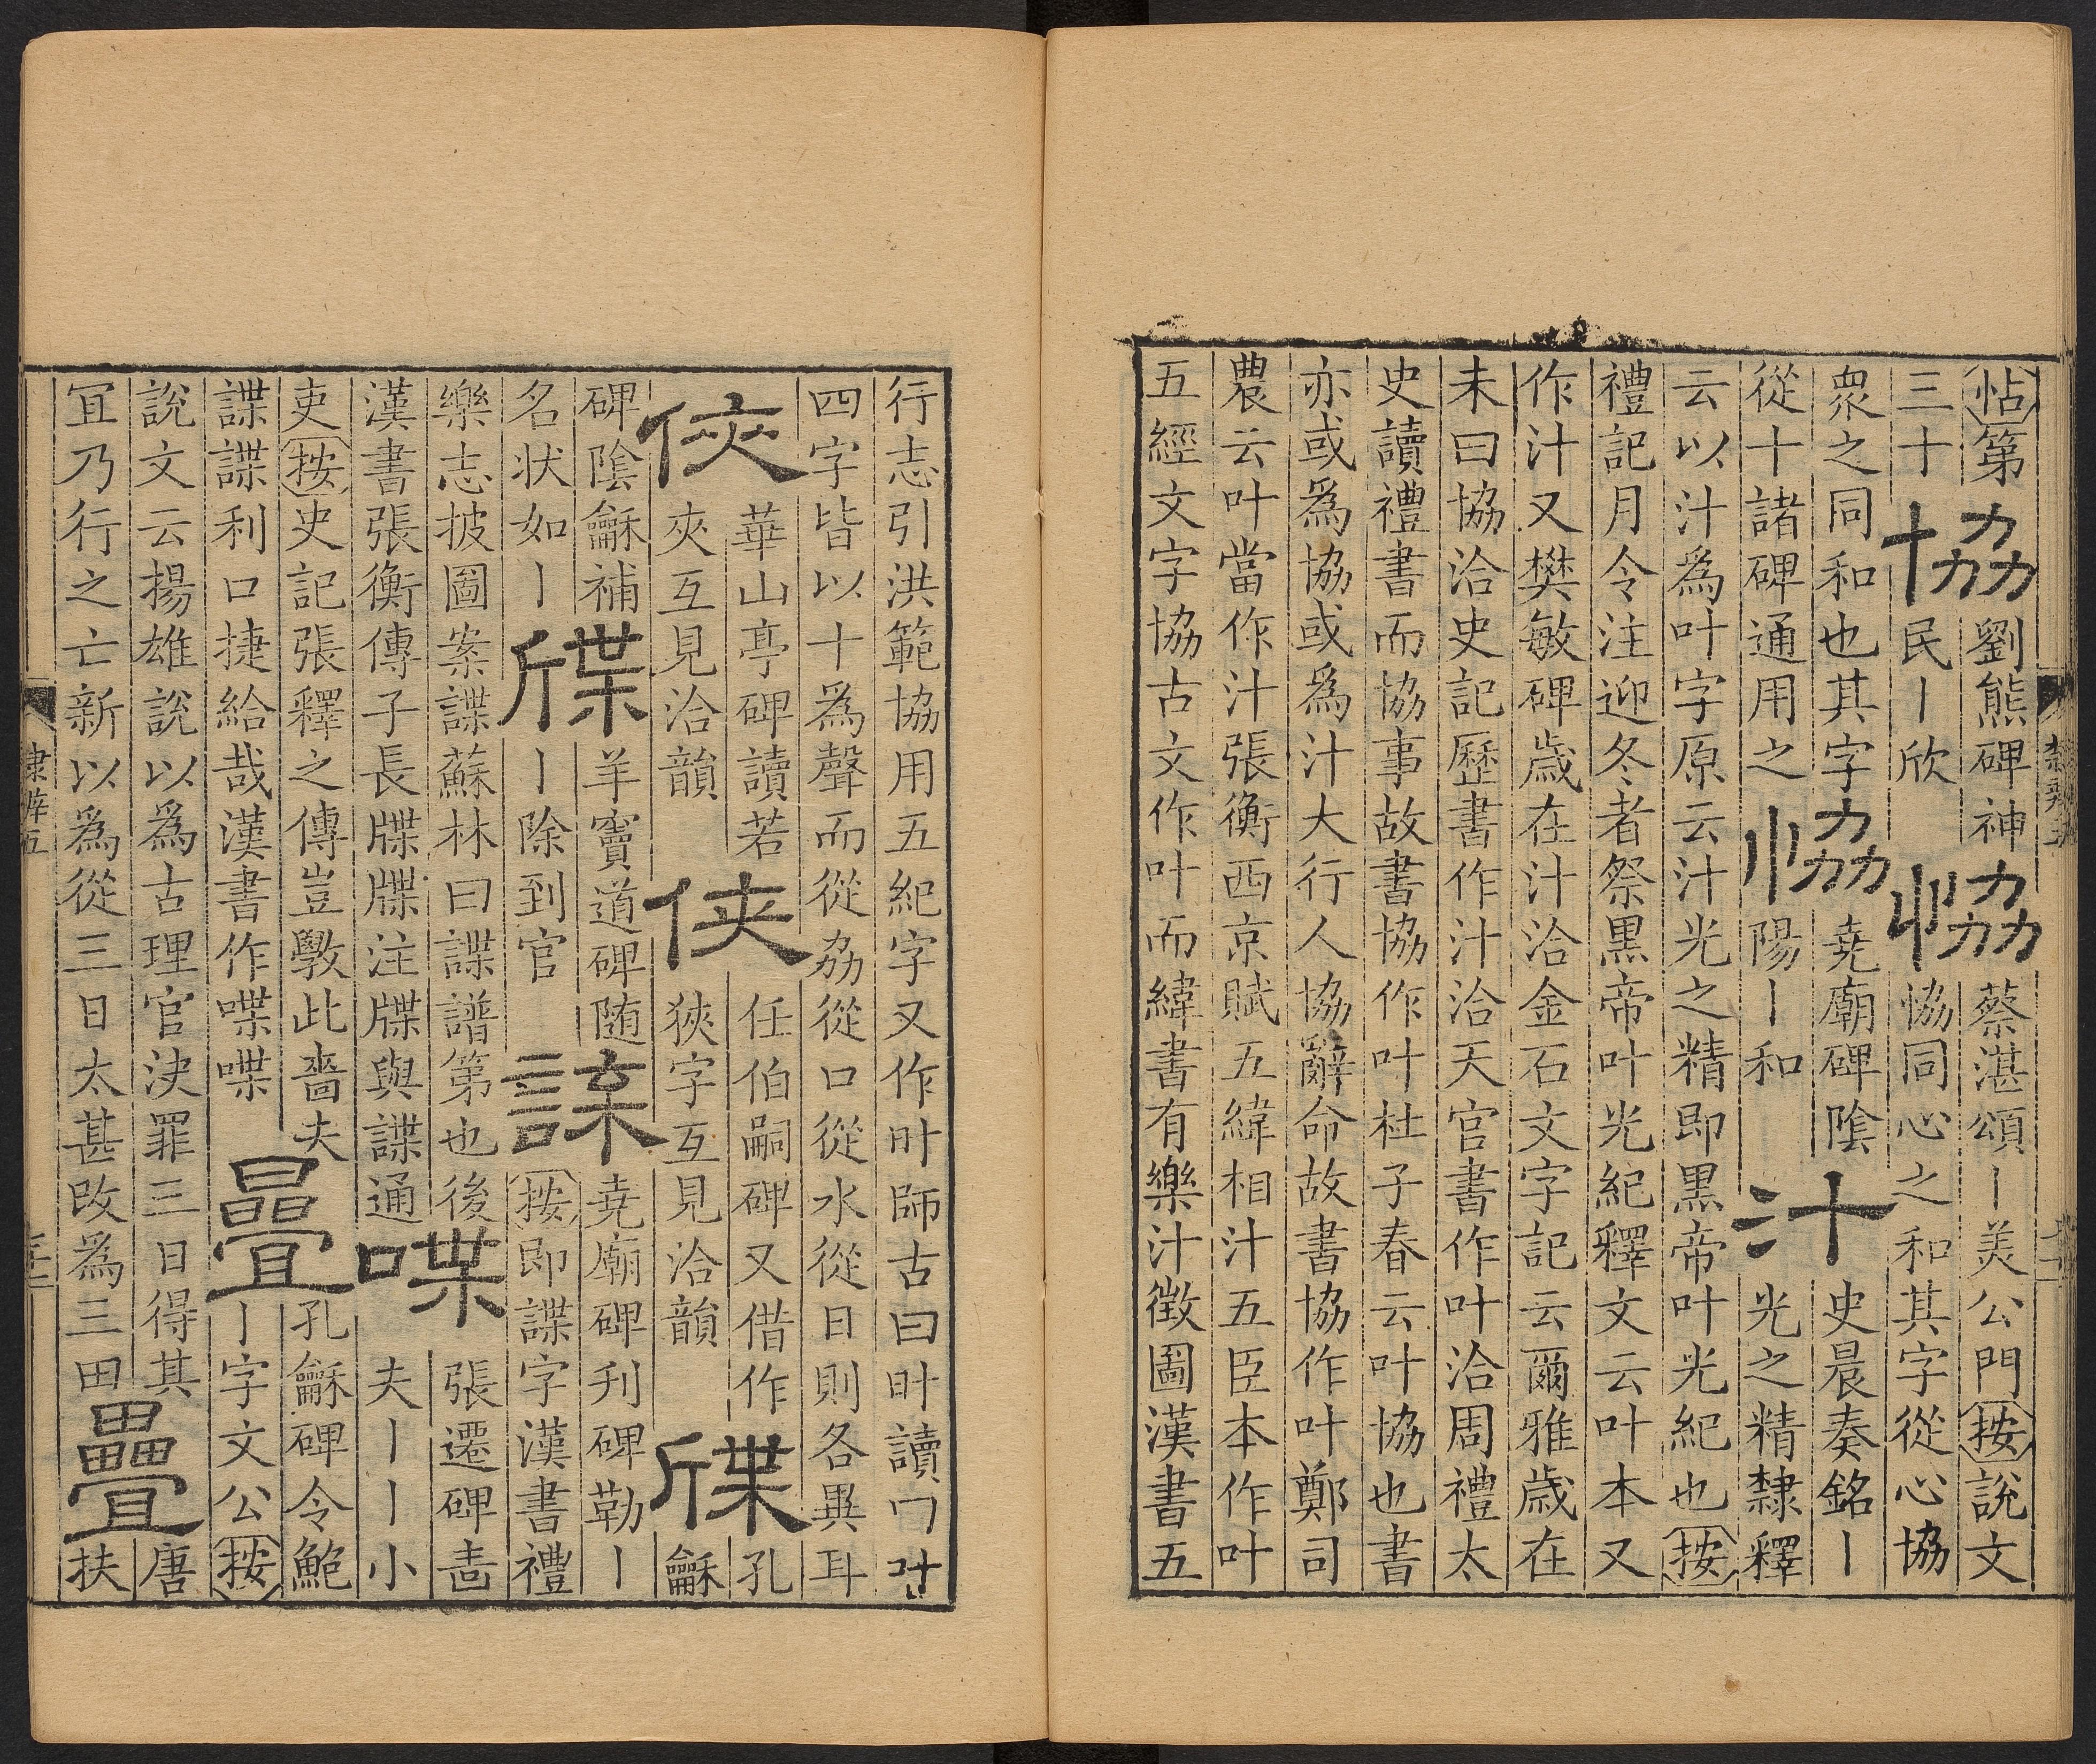 怗第協劉熊碑神恊蔡湛頌丨美公門按說文
三十民丨欣恊同心之和其字從心協
衆之同和也其字協堯廟碑陰汁史晨奏銘丨
從十諸碑通用之陽丨和光之精隸釋
云以汁為叶字原云汁光之精即黒帝叶光紀也按
禮記月令注迎冬者祭黒帝叶光紀釋文云叶本又
作汁又樊敏碑歲在汁洽金石文字記云爾雅歲在
未曰協洽史記歷書作汁洽天官書作叶洽周禮太
史讀禮書而協事故書協作叶杜子春云叶協也書
亦或為協或為汁大行人協辭命故書協作叶鄭司
農云叶當作汁張衡西京賦五緯相汁五臣本作叶
五經文字協古文作叶而緯書有樂汁徵圖漢書五
行志引洪範協用五紀字又作旪師古曰旪讀曰叶
四字皆以十為聲而從劦從口從水從日則各異耳
俠華山亭碑讀若俠任伯嗣碑又借作牒孔
夾互見洽韻狹字互見洽韻龢
碑陰龢補牒羊竇道碑随諜堯廟碑刋碑勒丨
名状如丨丨除到官按即諜字漢書禮
樂志披圖案諜蘇林曰諜譜第也後喋張遷碑啬
漢書張衡傳子長牒牒注牒與諜通夫丨丨小
吏按史記張釋之傳豈斆此嗇夫曡孔龢碑令鮑
諜諜利口捷給哉漢書作喋喋丨字文公按
說文云揚雄說以為古理官決罪三日得其疊唐
冝乃行之亡新以為從三日太甚改為三田扶